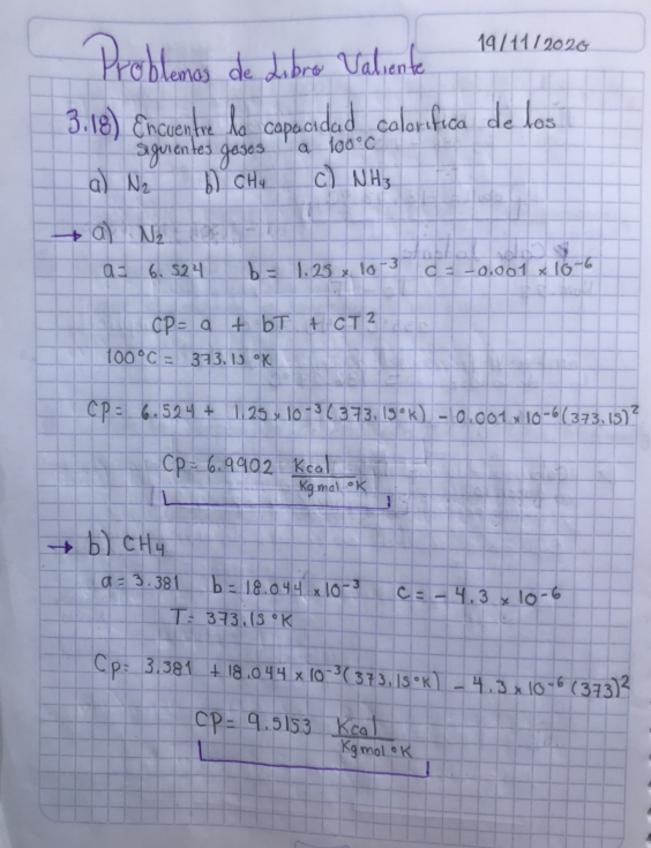 19/11/2020
Problemas de Libro Valiente
3.18) Encuentre la capacidad calorifica de los
siguientes gases a 100°C
a) N2 b) CH4 c) NH3
→ a) N2
a= 6.524 b= 1.25 x 10-3 c = -0.001 x 10-6
CP= a + bT + CT2
100°C = 373.15 °K
CP= 6.524 + 1.25 x 10-3 (373.15°K) - 0.001 x 10-6 (373.15)2
CP= 6.9902 Kcal
Kgmol °K
→ b) CH4
a = 3.381 b = 18.044 x 10-3 c = - 4.3 x 10-6
T= 373.15 °K
Cp= 3.381 + 18.044 x 10-3 (373.15°K) - 4.3 x 10-6 (373)2
CP= 9.5153 Kcal
Kgmol °K